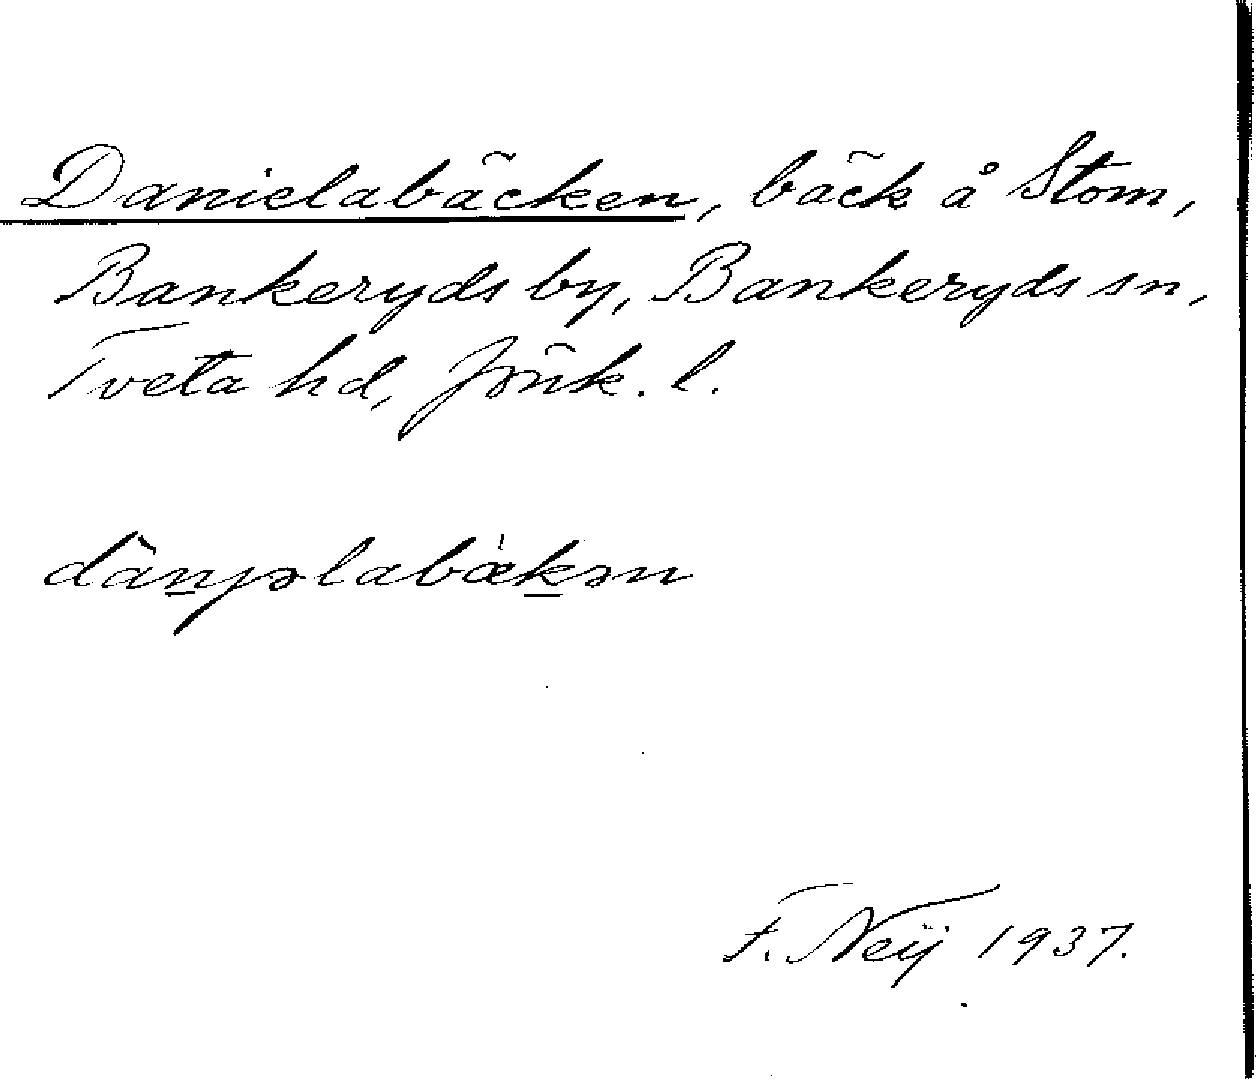 Danielabäcken, bäck å Stom,
Bankeryds by, Bankeryds sn,
Tveta hd, Jönk. l.
dànjəlabæ̀kən
F. Neij 1937.